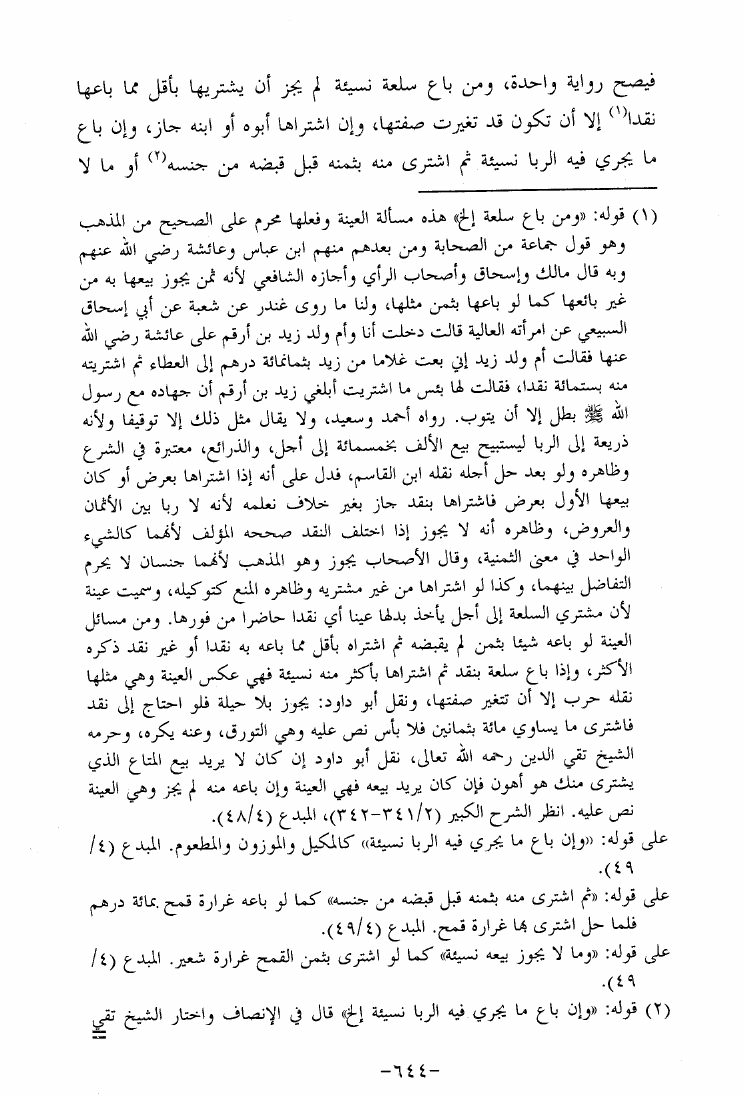 فيصح رواية واحدة، ومن باع سلعة نسيئة لم يجز أن يشتريها بأقل مما باعها
نقدا(١) إلا أن تكون قد تغيرت صفتها، وإن اشتراها أبوه أو ابنه جاز، وإن باع
ما يجري فيه الربا نسيئة ثم اشترى منه بثمنه قبل قبضه من جنسه(٢) أو ما لا
(١) قوله: «ومن باع سلعة إلخ» هذه مسألة العينة وفعلها محرم على الصحيح من المذهب
وهو قول جماعة من الصحابة ومن بعدهم منهم ابن عباس وعائشة رضي الله عنهم
وبه قال مالك وإسحاق وأصحاب الرأي وأجازه الشافعي لأنه ثمن يجوز بيعها به من
غير بائعها كما لو باعها بثمن مثلها، ولنا ما روى غندر عن شعبة عن أبي إسحاق
السبيعي عن امرأته العالية قالت دخلت أنا وأم ولد زيد بن أرقم على عائشة رضي الله
عنها فقالت أم ولد زيد إني بعت غلاما من زيد بثمانمائة درهم إلى العطاء ثم اشتريته
منه بستمائة نقدا، فقالت لها بئس ما اشتريت أبلغي زيد بن أرقم أن جهاده مع رسول
الله ﷺ بطل إلا أن يتوب. رواه أحمد وسعيد، ولا يقال مثل ذلك إلا توقيفا ولأنه
ذريعة إلى الربا ليستبيح بيع الألف بخمسمائة إلى أجل، والذرائع، معتبرة في الشرع
وظاهره ولو بعد حل أجله نقله ابن القاسم، فدل على أنه إذا اشتراها بعرض أو كان
بيعها الأول بعرض فاشتراها بنقد جاز بغير خلاف نعلمه لأنه لا ربا بين الأثمان
والعروض، وظاهره أنه لا يجوز إذا اختلف النقد صححه المؤلف لأنهما كالشيء
الواحد في معنى الثمنية، وقال الأصحاب يجوز وهو المذهب لأنهما جنسان لا يحرم
التفاضل بينهما، وكذا لو اشتراها من غير مشتريه وظاهره المنع كتوكيله، وسميت عينة
لأن مشتري السلعة إلى أجل يأخذ بدلها عينا أي نقدا حاضرا من فورها. ومن مسائل
العينة لو باعه شيئا بثمن لم يقبضه ثم اشتراه بأقل مما باعه به نقدا أو غير نقد ذكره
الأكثر، وإذا باع سلعة بنقد ثم اشتراها بأكثر منه نسيئة فهي عكس العينة وهي مثلها
نقله حرب إلا أن تتغير صفتها، ونقل أبو داود: يجوز بلا حيلة فلو احتاج إلى نقد
فاشترى ما يساوي مائة بثمانين فلا بأس نص عليه وهي التورق، وعنه يكره، وحرمه
الشيخ تقي الدين رحمه الله تعالى، نقل أبو داود إن كان لا يريد بيع المتاع الذي
يشترى منك هو أهون فإن كان يريد بيعه فهي العينة وإن باعه منه لم يجز وهي العينة
نص عليه. انظر الشرح الكبير (٣٤١/٢-٣٤٢)، المبدع (٤٨/٤).
على قوله: «وإن باع ما يجري فيه الربا نسيئة» كالمكيل والموزون والمطعوم. المبدع (٤/
٤٩).
على قوله: «ثم اشترى منه بثمنه قبل قبضه من جنسه» كما لو باعه غرارة قمح بمائة درهم
فلما حل اشترى بها غرارة قمح. المبدع (٤٩/٤).
على قوله: «وما لا يجوز بيعه نسيئة» كما لو اشترى بثمن القمح غرارة شعير. المبدع (٤/
٤٩).
(٢) قوله: «وإن باع ما يجري فيه الربا نسيئة إلخ» قال في الإنصاف واختار الشيخ تقي
=
-٦٤٤-